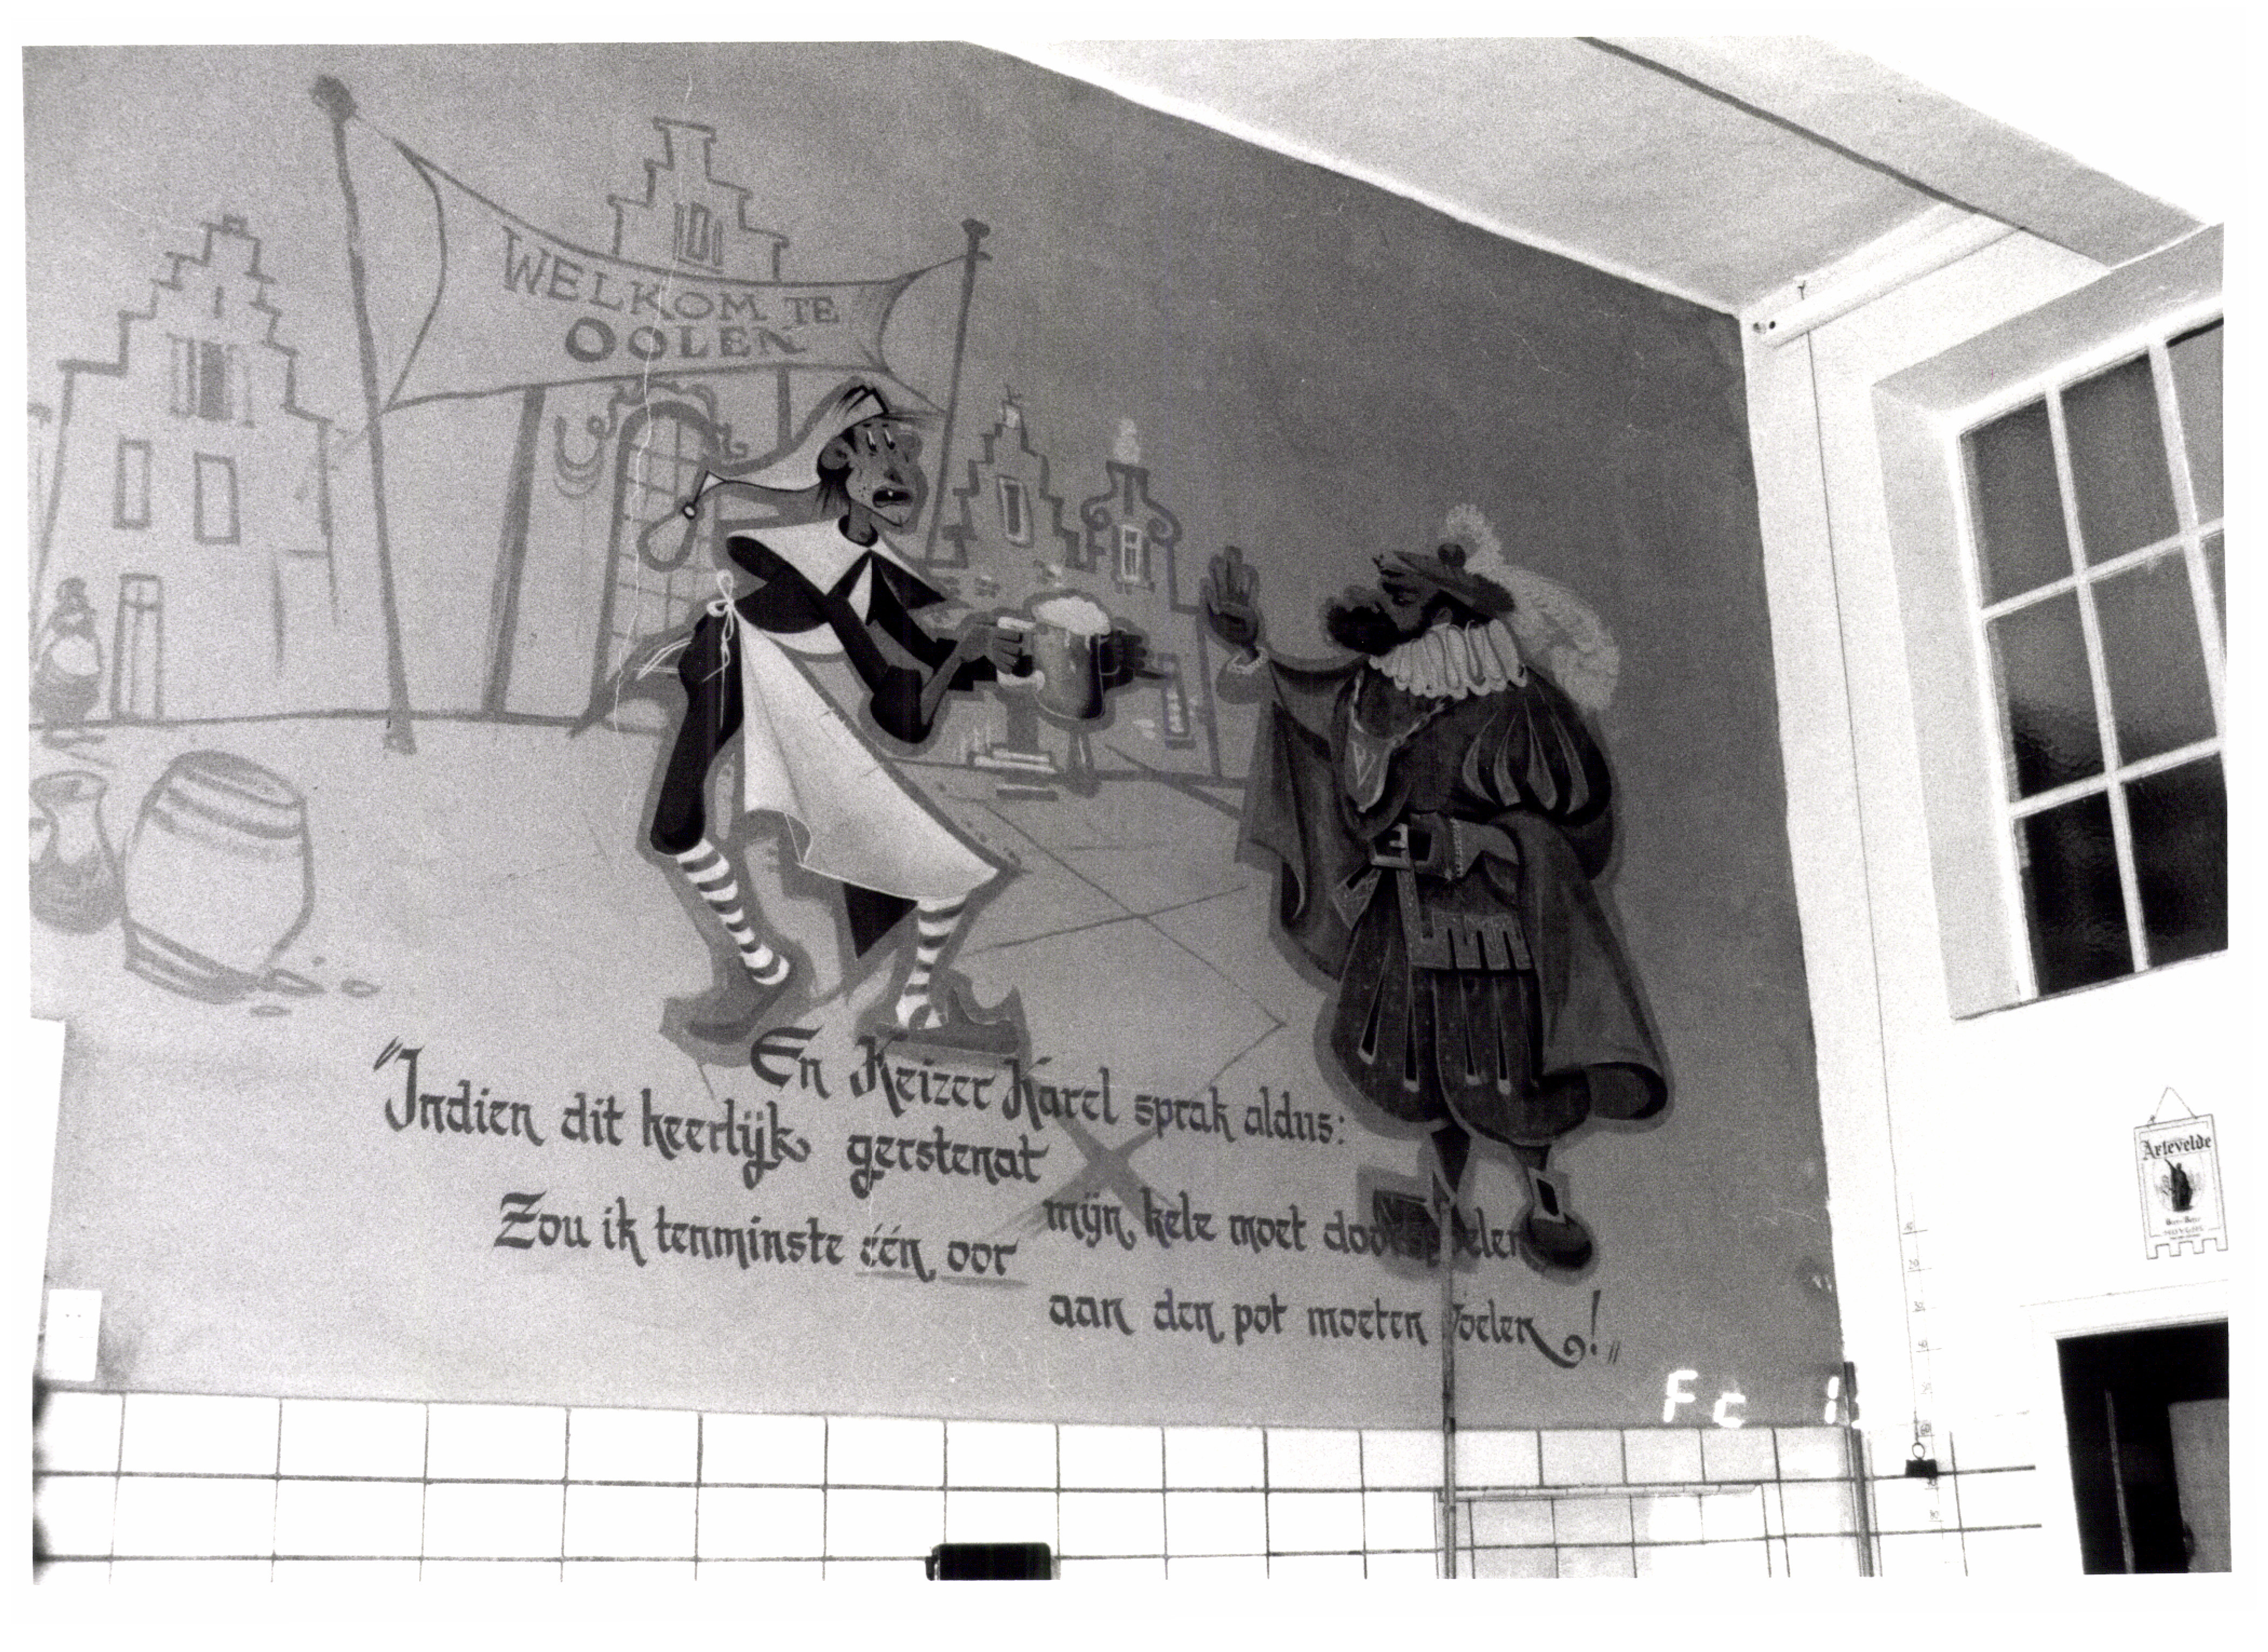 WELKOM TE
OOLEN
En Keizer Karel sprak aldus:
"Indien dit heerlijk gerstenat
mijn kele moet doorspoelen
Zou ik tenminste één oor
aan den pot moeten voelen!"
Artevelde
Fc 11